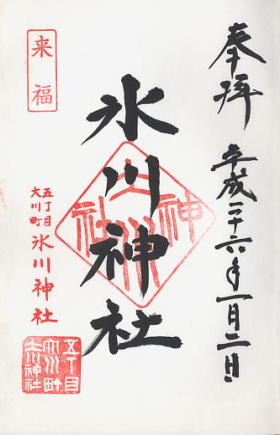 奉拝
平成二十六年一月二日
氷川神社
来福
五丁目
大川町
氷川神社
五丁目
大川町
氷川神社